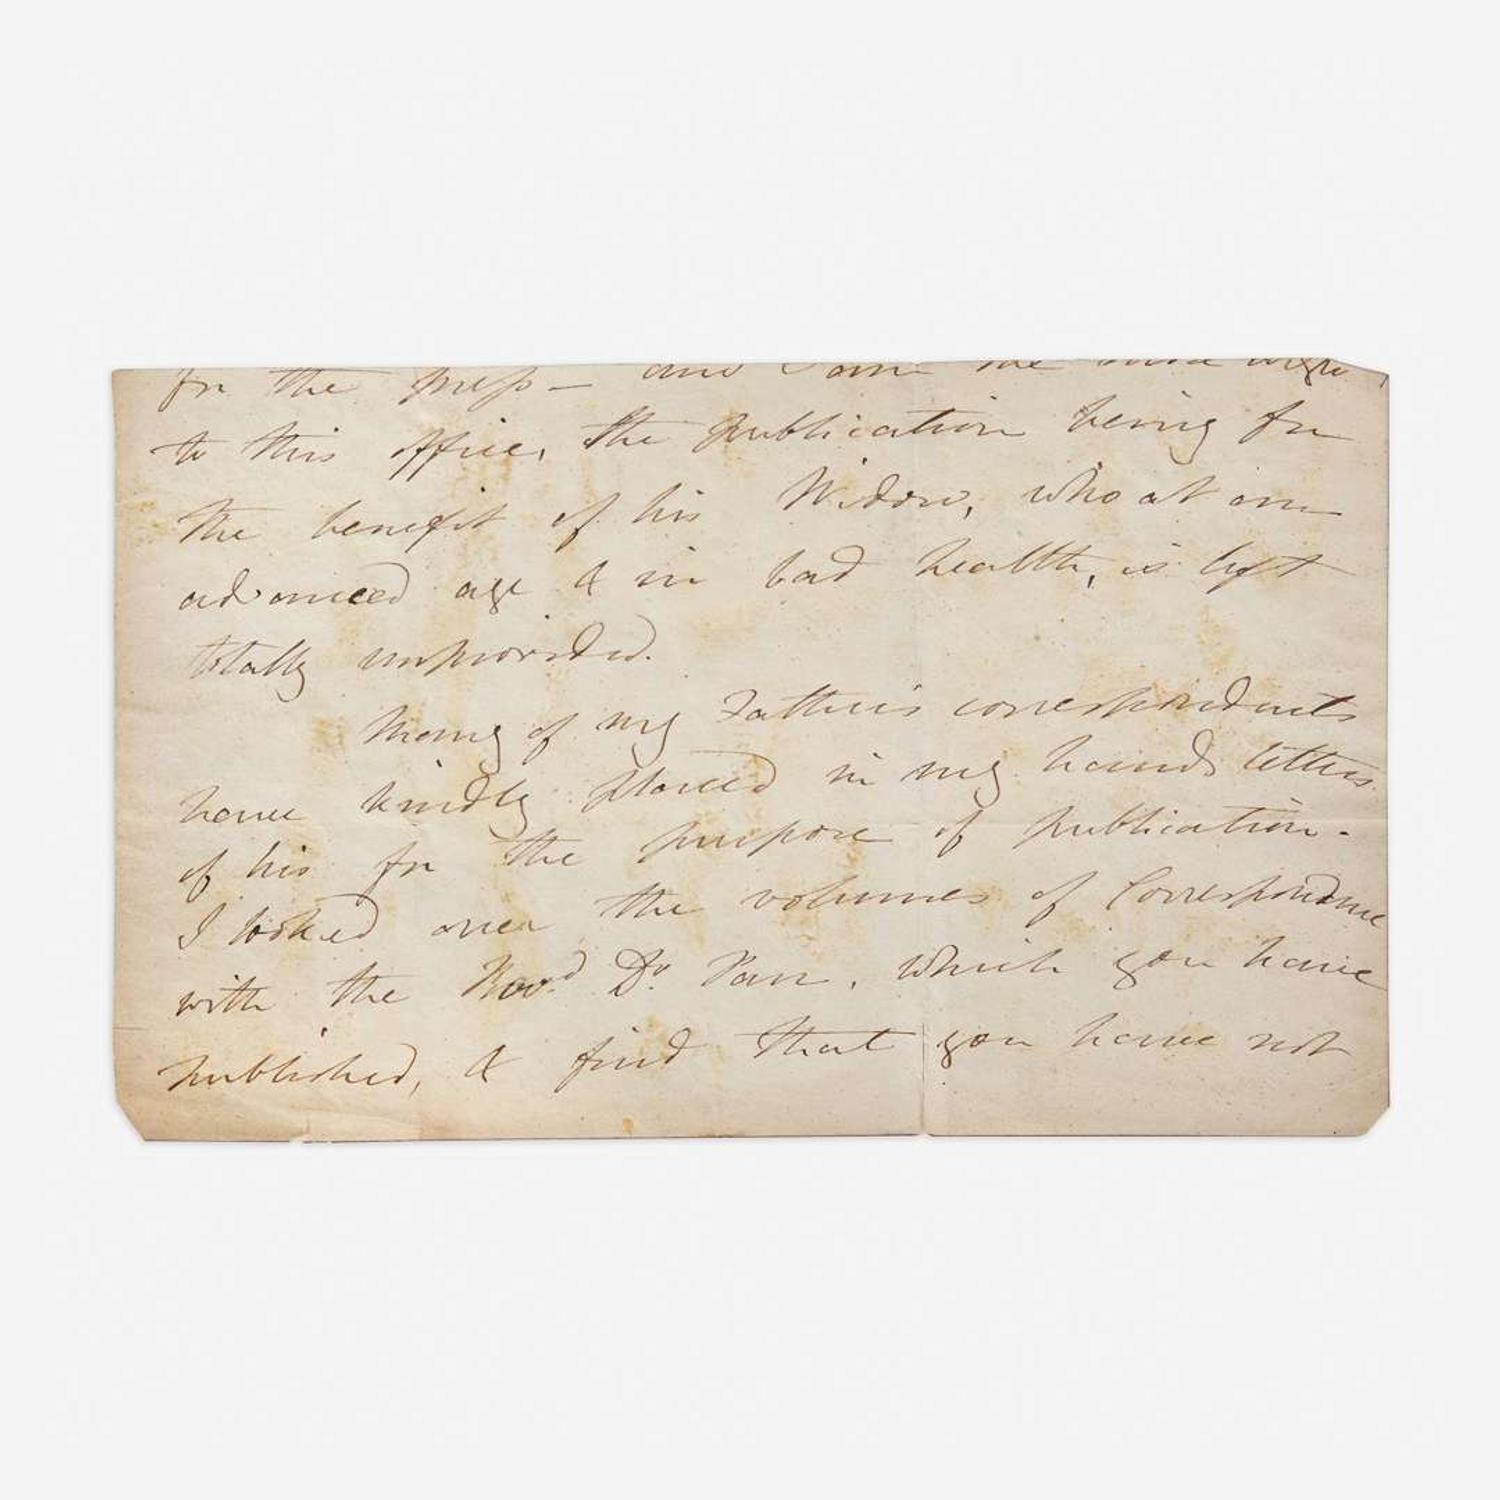 for the press — and I am the more urged
to this office, the publication being for
the benefit of his Widow, who at an
advanced age & in bad health, is left
totally unprovided.
Many of my Father's correspondents
have kindly placed in my hands letters
of his for the purpose of publication.
I looked over the volumes of Correspondence
with the Revd Dr. Parr, which you have
published, & find that you have not